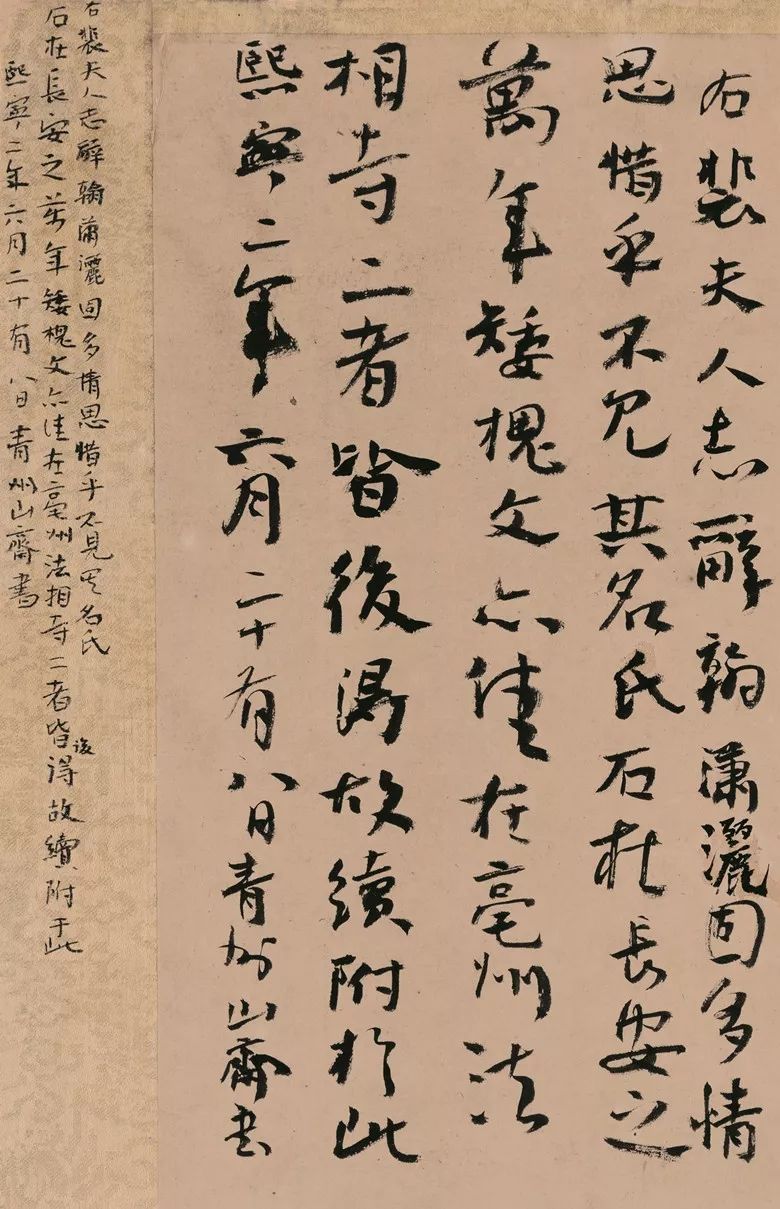 右裴夫人志辭翰瀟灑固多情
思惜乎不見其名氏石在長安之
萬年矮槐文亦佳在亳州法
相寺二者皆後得故續附於此
熙寧二年六月二十有八日青州山齋書
右裴夫人志辭翰蕭灑固多情思惜乎不見其名氏
石在長安之萬年矮槐文亦佳在亳州法相寺二者皆後得故續附于此
熙寧二年六月二十有八日青州山齋書